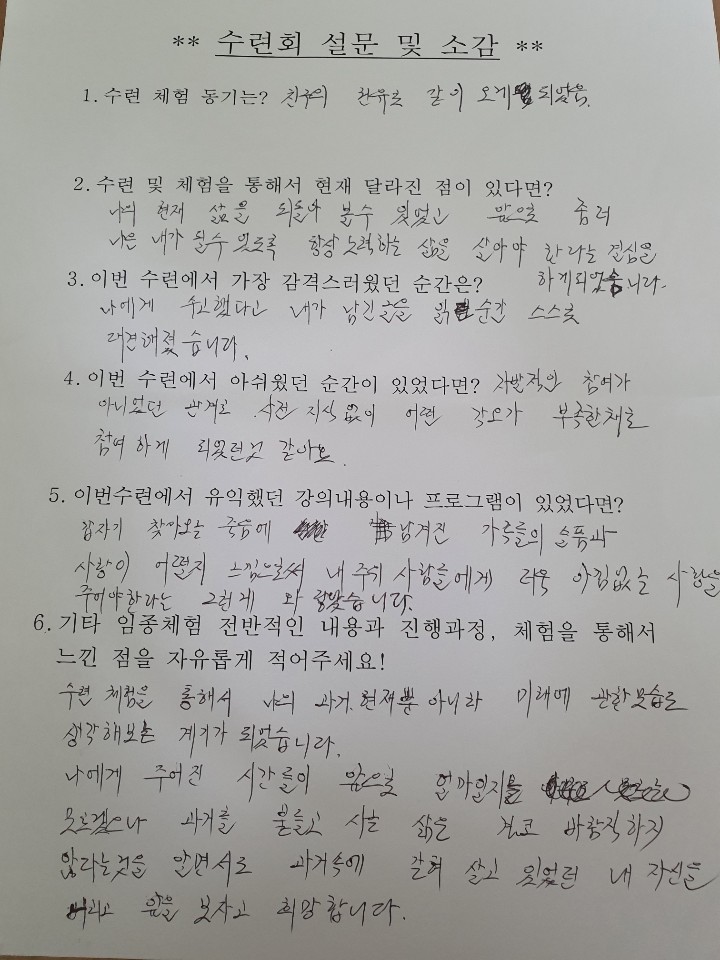 ** 수련회 설문 및 소감 **
1. 수련 체험 동기는? 친구의 권유로 같이 오게 되었음.
2. 수련 및 체험을 통해서 현재 달라진 점이 있다면?
나의 현재 삶을 되돌아 볼수 있었고 앞으로 좀더
나은 내가 될수 있도록 항상 노력하는 삶을 살아야 한다는 결심을
3. 이번 수련에서 가장 감격스러웠던 순간은? 하게되었습니다.
나에게 수고했다고 내가 남긴 글을 읽는 순간 스스로
대견해졌습니다.
4. 이번 수련에서 아쉬웠던 순간이 있었다면? 자발적인 참여가
아니었던 관계로 사전 지식 없이 어떤 각오가 부족한채로
참여하게 되었던것 같아요.
5. 이번수련에서 유익했던 강의내용이나 프로그램이 있었다면?
갑자기 찾아오는 죽음에 남겨진 가족들의 슬픔과
사랑이 어떨지 느낌으로써 내 주위 사람들에게 더욱 아낌없는 사랑을
주어야한다는 그런게 와 닿았습니다.
6. 기타 임종체험 전반적인 내용과 진행과정, 체험을 통해서
느낀 점을 자유롭게 적어주세요!
수련 체험을 통해서 나의 과거. 현재뿐 아니라 미래에 관한 모습도
생각해보는 계기가 되었습니다.
나에게 주어진 시간들이 앞으로 얼마일지는
모르겠으나 과거를 붙들고 사는 삶은 결코 바람직하지
않다는것을 알면서도 과거속에 갇혀 살고 있었던 내 자신을
버리고 앞을 보자고 희망합니다.